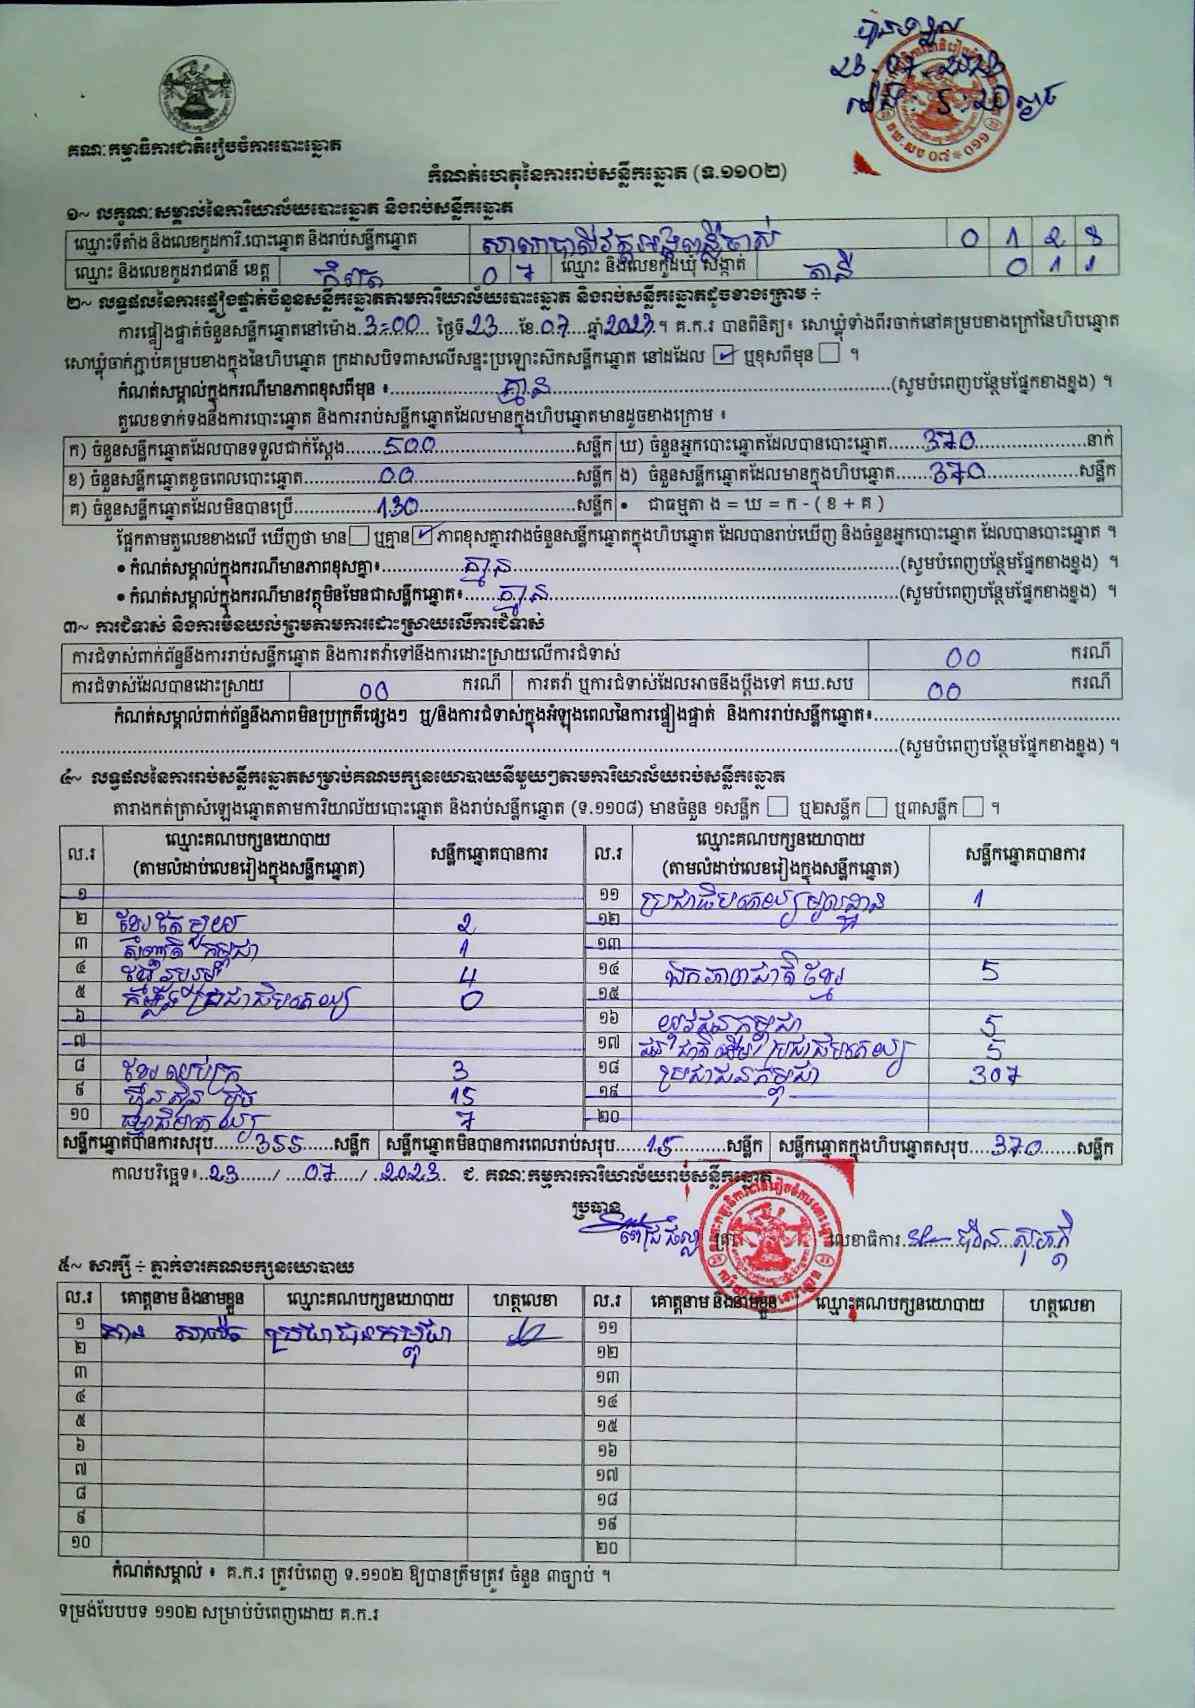 បានទទួល
23.07.2023
ម៉ោង 5:20 ល្ងាច
គណៈកម្មាធិការជាតិរៀបចំការបោះឆ្នោត
កំណត់ហេតុនៃការរាប់សន្លឹកឆ្នោត (ទ.១១០២)
១~ លក្ខណៈសម្គាល់នៃការិយាល័យបោះឆ្នោត និងរាប់សន្លឹកឆ្នោត
ឈ្មោះទីតាំង និងលេខកូដការិ.បោះឆ្នោត និងរាប់សន្លឹកឆ្នោត 0 1 2 8
ឈ្មោះ និងលេខកូដរាជធានី ខេត្ត កំពត 0 7 ឈ្មោះ និងលេខកូដឃុំ សង្កាត់ តានី 0 1 1
២~ លទ្ធផលនៃការផ្ទៀងផ្ទាត់ចំនួនសន្លឹកឆ្នោតតាមការិយាល័យបោះឆ្នោត និងរាប់សន្លឹកឆ្នោតដូចខាងក្រោម ÷
ការផ្ទៀងផ្ទាត់ចំនួនសន្លឹកឆ្នោតនៅម៉ោង.3:00... ថ្ងៃទី23....ខែ.07....ឆ្នាំ2023។ គ.ក.រ បានពិនិត្យ៖ សោឃ្លុំទាំងពីរចាក់នៅគម្របខាងក្រៅនៃហិបឆ្នោត
សោឃ្លុំចាក់ភ្ជាប់គម្របខាងក្នុងនៃហិបឆ្នោត ក្រដាសបិទពាសលើសន្ទះប្រឡោះសិកសន្លឹកឆ្នោត នៅដដែល ☑ ឬខុសពីមុន ☐ ។
កំណត់សម្គាល់ក្នុងករណីមានភាពខុសពីមុន ៖ គ្មាន (សូមបំពេញបន្ថែមផ្នែកខាងខ្នង) ។
តួលេខទាក់ទងនឹងការបោះឆ្នោត និងការរាប់សន្លឹកឆ្នោតដែលមានក្នុងហិបឆ្នោតមានដូចខាងក្រោម ៖
ក) ចំនួនសន្លឹកឆ្នោតដែលបានទទួលជាក់ស្តែង.......500.......សន្លឹក ឃ) ចំនួនអ្នកបោះឆ្នោតដែលបានបោះឆ្នោត.......370.......នាក់
ខ) ចំនួនសន្លឹកឆ្នោតខូចពេលបោះឆ្នោត.......00.......សន្លឹក ង) ចំនួនសន្លឹកឆ្នោតដែលមានក្នុងហិបឆ្នោត.......370.......សន្លឹក
គ) ចំនួនសន្លឹកឆ្នោតដែលមិនបានប្រើ.......130.......សន្លឹក • ជាធម្មតា ង = ឃ = ក - ( ខ + គ )
ផ្អែកតាមតួលេខខាងលើ ឃើញថា មាន☐ ឬគ្មាន☑ ភាពខុសគ្នារវាងចំនួនសន្លឹកឆ្នោតក្នុងហិបឆ្នោត ដែលបានរាប់ឃើញ និងចំនួនអ្នកបោះឆ្នោត ដែលបានបោះឆ្នោត ។
• កំណត់សម្គាល់ក្នុងករណីមានភាពខុសគ្នា៖ គ្មាន (សូមបំពេញបន្ថែមផ្នែកខាងខ្នង) ។
• កំណត់សម្គាល់ក្នុងករណីមានវត្ថុមិនមែនជាសន្លឹកឆ្នោត៖ គ្មាន (សូមបំពេញបន្ថែមផ្នែកខាងខ្នង) ។
៣~ ការជំទាស់ និងការមិនយល់ព្រមតាមការដោះស្រាយលើការជំទាស់
ការជំទាស់ពាក់ព័ន្ធនឹងការរាប់សន្លឹកឆ្នោត និងការតវ៉ាទៅនឹងការដោះស្រាយលើការជំទាស់ 00 ករណី
ការជំទាស់ដែលបានដោះស្រាយ 00 ករណី ការតវ៉ា ឬការជំទាស់ដែលអាចនឹងប្តឹងទៅ គឃ.សប 00 ករណី
កំណត់សម្គាល់ពាក់ព័ន្ធនឹងភាពមិនប្រក្រតីផ្សេងៗ ឬ/និងការជំទាស់ក្នុងអំឡុងពេលនៃការផ្ទៀងផ្ទាត់ និងការរាប់សន្លឹកឆ្នោត៖
(សូមបំពេញបន្ថែមផ្នែកខាងខ្នង) ។
៤~ លទ្ធផលនៃការរាប់សន្លឹកឆ្នោតសម្រាប់គណបក្សនយោបាយនីមួយៗតាមការិយាល័យរាប់សន្លឹកឆ្នោត
តារាងកត់ត្រាសំឡេងឆ្នោតតាមការិយាល័យបោះឆ្នោត និងរាប់សន្លឹកឆ្នោត (ទ.១១០៨) មានចំនួន ១សន្លឹក ☐ ឬ២សន្លឹក ☐ ឬ៣សន្លឹក ☐ ។
ល.រ ឈ្មោះគណបក្សនយោបាយ (តាមលំដាប់លេខរៀងក្នុងសន្លឹកឆ្នោត) សន្លឹកឆ្នោតបានការ ល.រ ឈ្មោះគណបក្សនយោបាយ (តាមលំដាប់លេខរៀងក្នុងសន្លឹកឆ្នោត) សន្លឹកឆ្នោតបានការ
១ ១១ ប្រជាធិបតេយ្យមូលដ្ឋាន 1
២ ខ្មែរតែមួយ 2 ១២
៣ សញ្ជាតិកម្ពុជា 1 ១៣
៤ ខ្មែររួបរួម 4 ១៤ ឯកភាពជាតិខ្មែរ 5
៥ កម្លាំងប្រជាធិបតេយ្យ 0 ១៥
៦ ១៦ យុវជនកម្ពុជា 5
៧ ១៧ 5
៨ 3 ១៨ ប្រជាជនកម្ពុជា 307
៩ ហ្វ៊ុនស៊ិនប៉ិច 15 ១៩
១០ ធម្មាធិបតេយ្យ 7 ២០
សន្លឹកឆ្នោតបានការសរុប......355......សន្លឹក សន្លឹកឆ្នោតមិនបានការពេលរាប់សរុប......15......សន្លឹក សន្លឹកឆ្នោតក្នុងហិបឆ្នោតសរុប....370......សន្លឹក
កាលបរិច្ឆេទ៖..23....../ ...07...../ ..2023.. ជ. គណៈកម្មការការិយាល័យរាប់សន្លឹកឆ្នោត
ប្រធាន
លេខាធិការ
៥~ សាក្សី ÷ ភ្នាក់ងារគណបក្សនយោបាយ
ល.រ គោត្តនាម និងនាមខ្លួន ឈ្មោះគណបក្សនយោបាយ ហត្ថលេខា ល.រ គោត្តនាម និងនាមខ្លួន ឈ្មោះគណបក្សនយោបាយ ហត្ថលេខា
១ ប្រជាជនកម្ពុជា ១១
២ ១២
៣ ១៣
៤ ១៤
៥ ១៥
៦ ១៦
៧ ១៧
៨ ១៨
៩ ១៩
១០ ២០
កំណត់សម្គាល់ ៖ គ.ក.រ ត្រូវបំពេញ ទ.១១០២ ឱ្យបានត្រឹមត្រូវ ចំនួន ៣ច្បាប់ ។
ទម្រង់បែបបទ ១១០២ សម្រាប់បំពេញដោយ គ.ក.រ